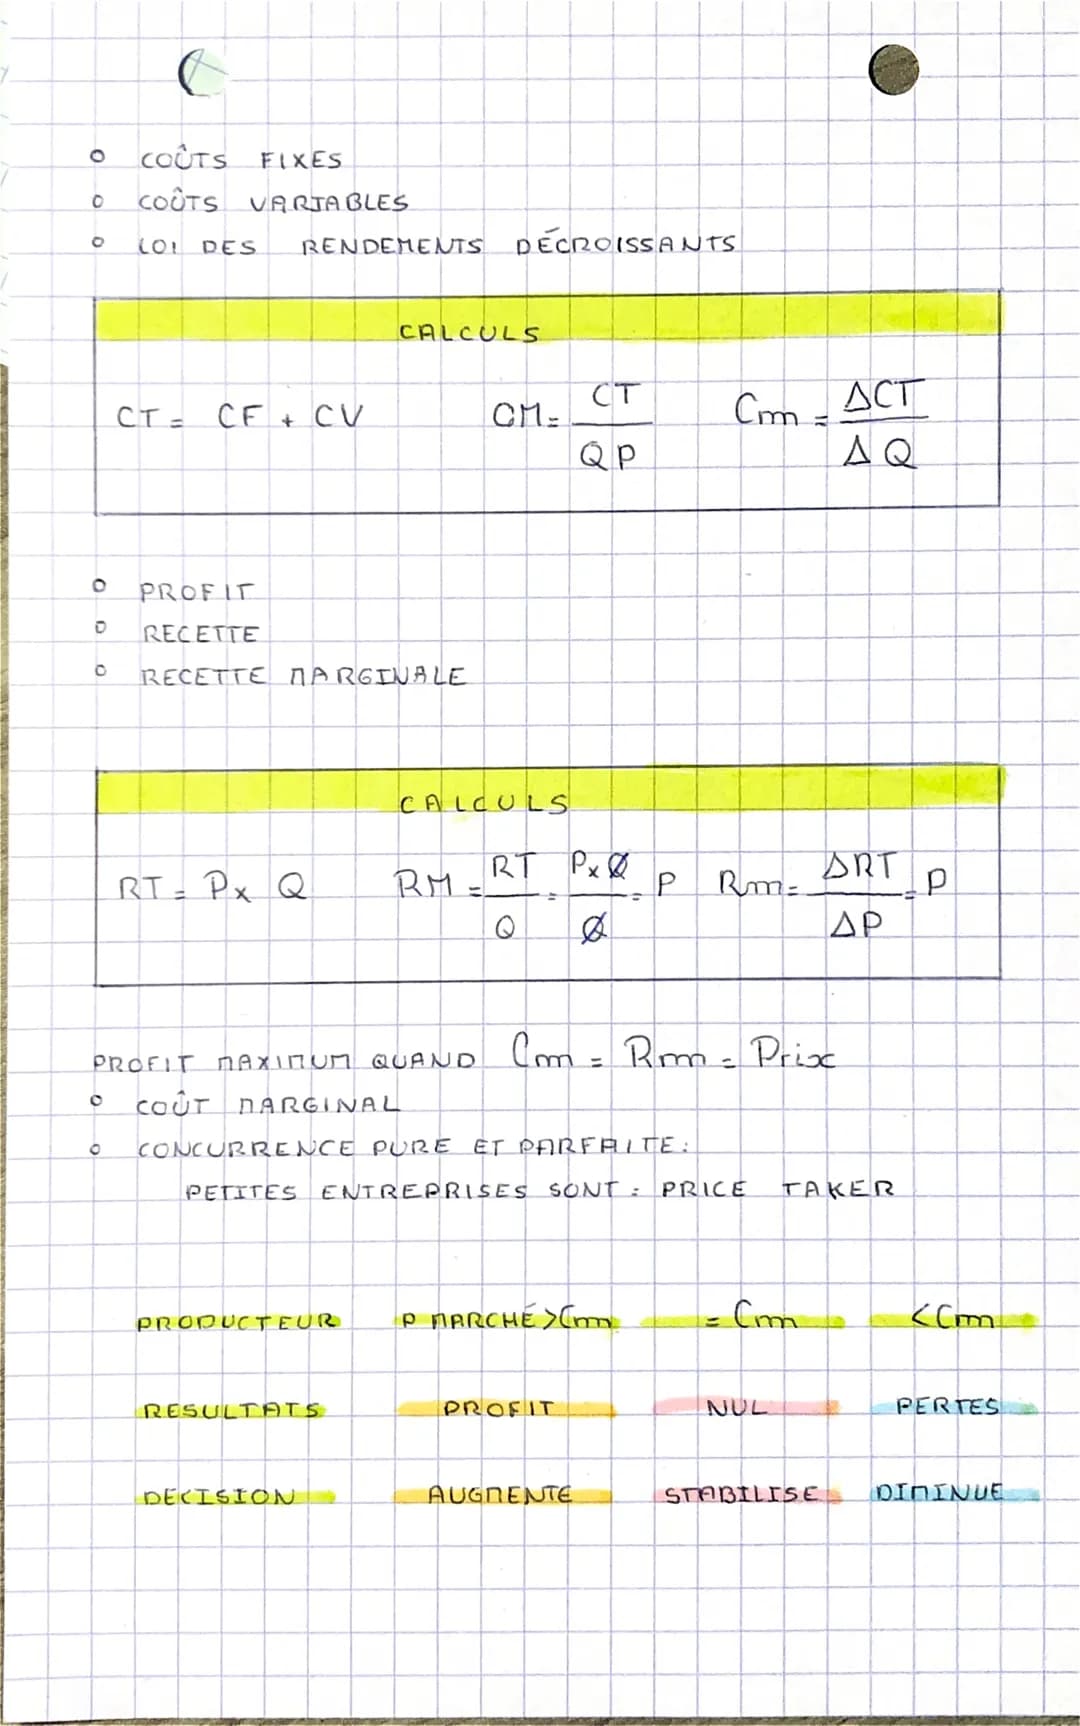 ○ COÛTS FIXES
○ COÛTS VARIABLES
○ LOI DES RENDEMENTS DÉCROISSANTS
CALCULS
CT = CF + CV CM = CT / QP Cm = ΔCT / ΔQ
○ PROFIT
○ RECETTE
○ RECETTE MARGINALE
CALCULS
RT = P x Q RM = RT / Q = P x Q / Q = P Rm = ΔRT / ΔP = P
PROFIT MAXIMUM QUAND Cm = Rm = Prix
○ COÛT MARGINAL
○ CONCURRENCE PURE ET PARFAITE :
PETITES ENTREPRISES SONT : PRICE TAKER
PRODUCTEUR P MARCHÉ > Cm = Cm < Cm
RESULTATS PROFIT NUL PERTES
DECISION AUGMENTE STABILISE DIMINUE